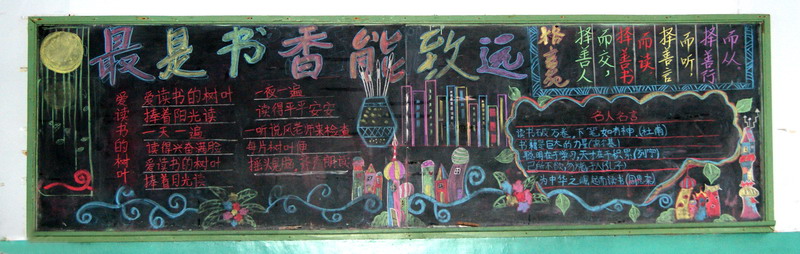 最是书香能致远
爱读书的树叶
爱读书的树叶
捧着阳光读
一天一遍
读得兴奋满脸
爱读书的树叶
捧着月光读
一夜一遍
读得平平安安
一听说风老师来检查
每片树叶便
格言苑
择善人
而交，
择善书
而读
择善言
而听！
择善行
而从．
名人名言
读书破万卷，下笔如有神(杜甫)
书籍是巨大的力量(列宁)